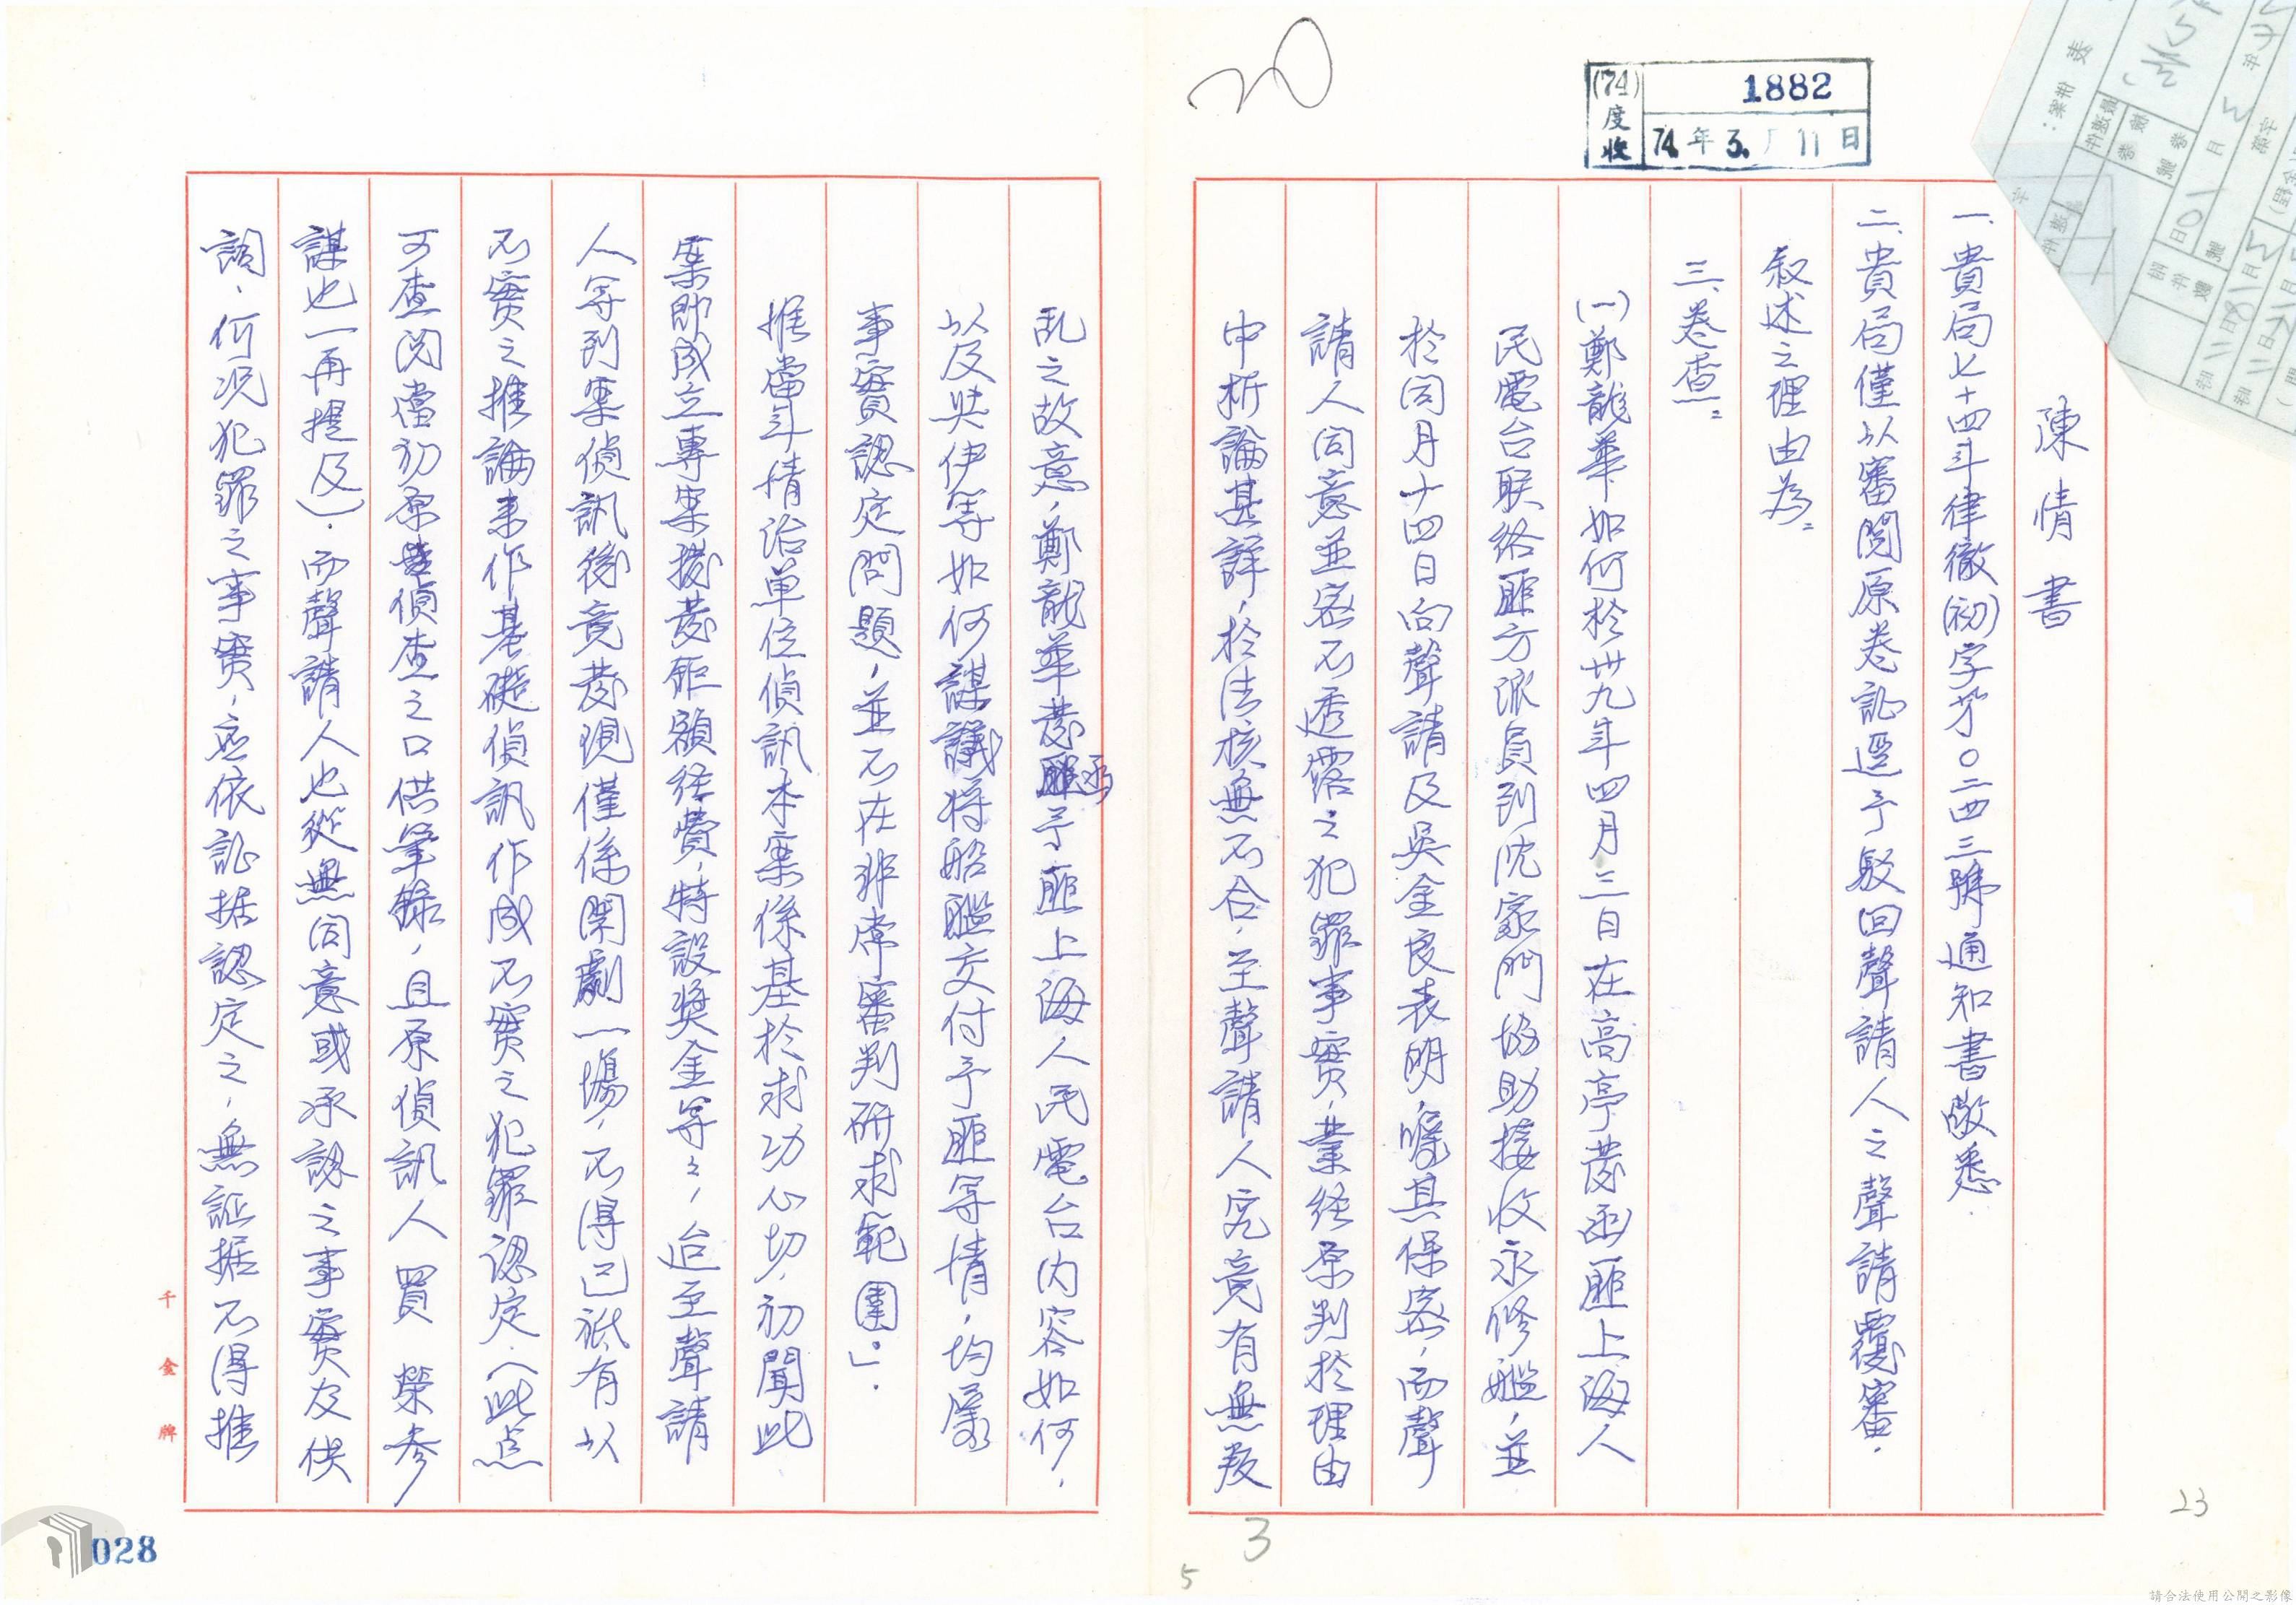 20
(74)度收
1882
74年3月11日
陳情書
一、貴局七十四年律徹(初)字第〇二四三號通知書敬悉.
二、貴局僅以審閱原卷記逕予駁回聲請人之聲請覆審.
叙述之理由為：
三、卷查：
(一)鄭龍華如何於卅九年四月三日在高亭發函匪上海人
民電台联络匪方派員到沈家門協助接收永修艦，並
於同月十四日向聲請及吳金良表明，囑其保密，而聲
請人同意並密不透露之犯罪事實，業经原判於理由
中析論甚詳，於法核無不合，至聲請人究竟有無叛
乱之故意，鄭龍華發函予匪上海人民電台内容如何，
以及與伊等如何謀議将船艦交付予匪等情，均屬
事實認定問題，並不在非常審判研求範圍。」.
推當年情治单位偵訊本案係基於求功心切，初聞此
案即成立專案撥發鉅額经費，特設奬金等之，迨至聲請
人等到案偵訊後竟發現僅係鬧劇一場，不得已祗有以
不實之推論来作基礎偵訊作成不實之犯罪認定.(此点
可查閱當初原偵查之口供筆錄，且原偵訊人買 榮參
謀也一再提及).而聲請人也從無同意或承認之事實及供
詞，何况犯罪之事實，应依証据認定之，無証据不得推
千金牌
028
3
5
23
請合法使用公開之影像